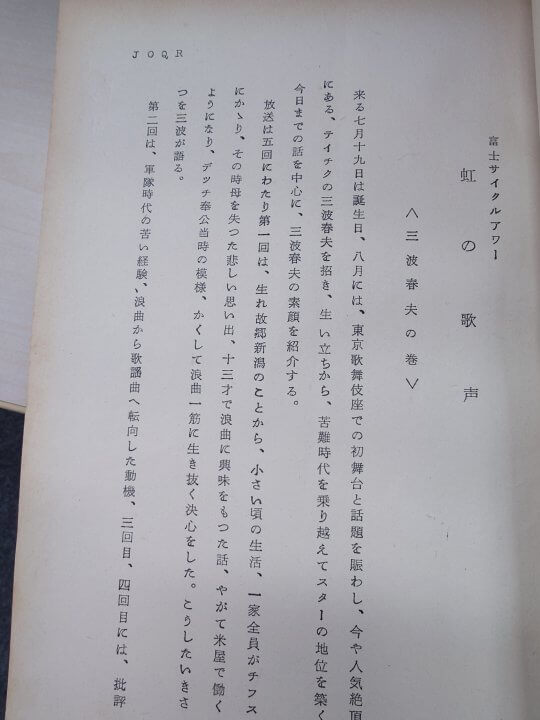 富士サイクルアワー
虹の歌声
＜三波春夫の巻＞
来る七月十九日は誕生日、八月には、東京歌舞伎座での初舞台と話題を賑わし、今や人気絶頂
にある、テイチクの三波春夫を招き、生い立ちから、苦難時代を乗り越えてスターの地位を築く
今日までの話を中心に、三波春夫の素顔を紹介する。
放送は五回にわたり第一回は、生れ故郷新潟のことから、小さい頃の生活、一家全員がチフス
にかゝり、その時母を失つた悲しい思い出、十三才で浪曲に興味をもつた話、やがて米屋で働く
ようになり、デッチ奉公当時の模様、かくして浪曲一筋に生き抜く決心をした。こうしたいきさ
つを三波が語る。
第二回は、軍隊時代の苦い経験、浪曲から歌謡曲へ転向した動機、三回目、四回目には、批評
JOQR